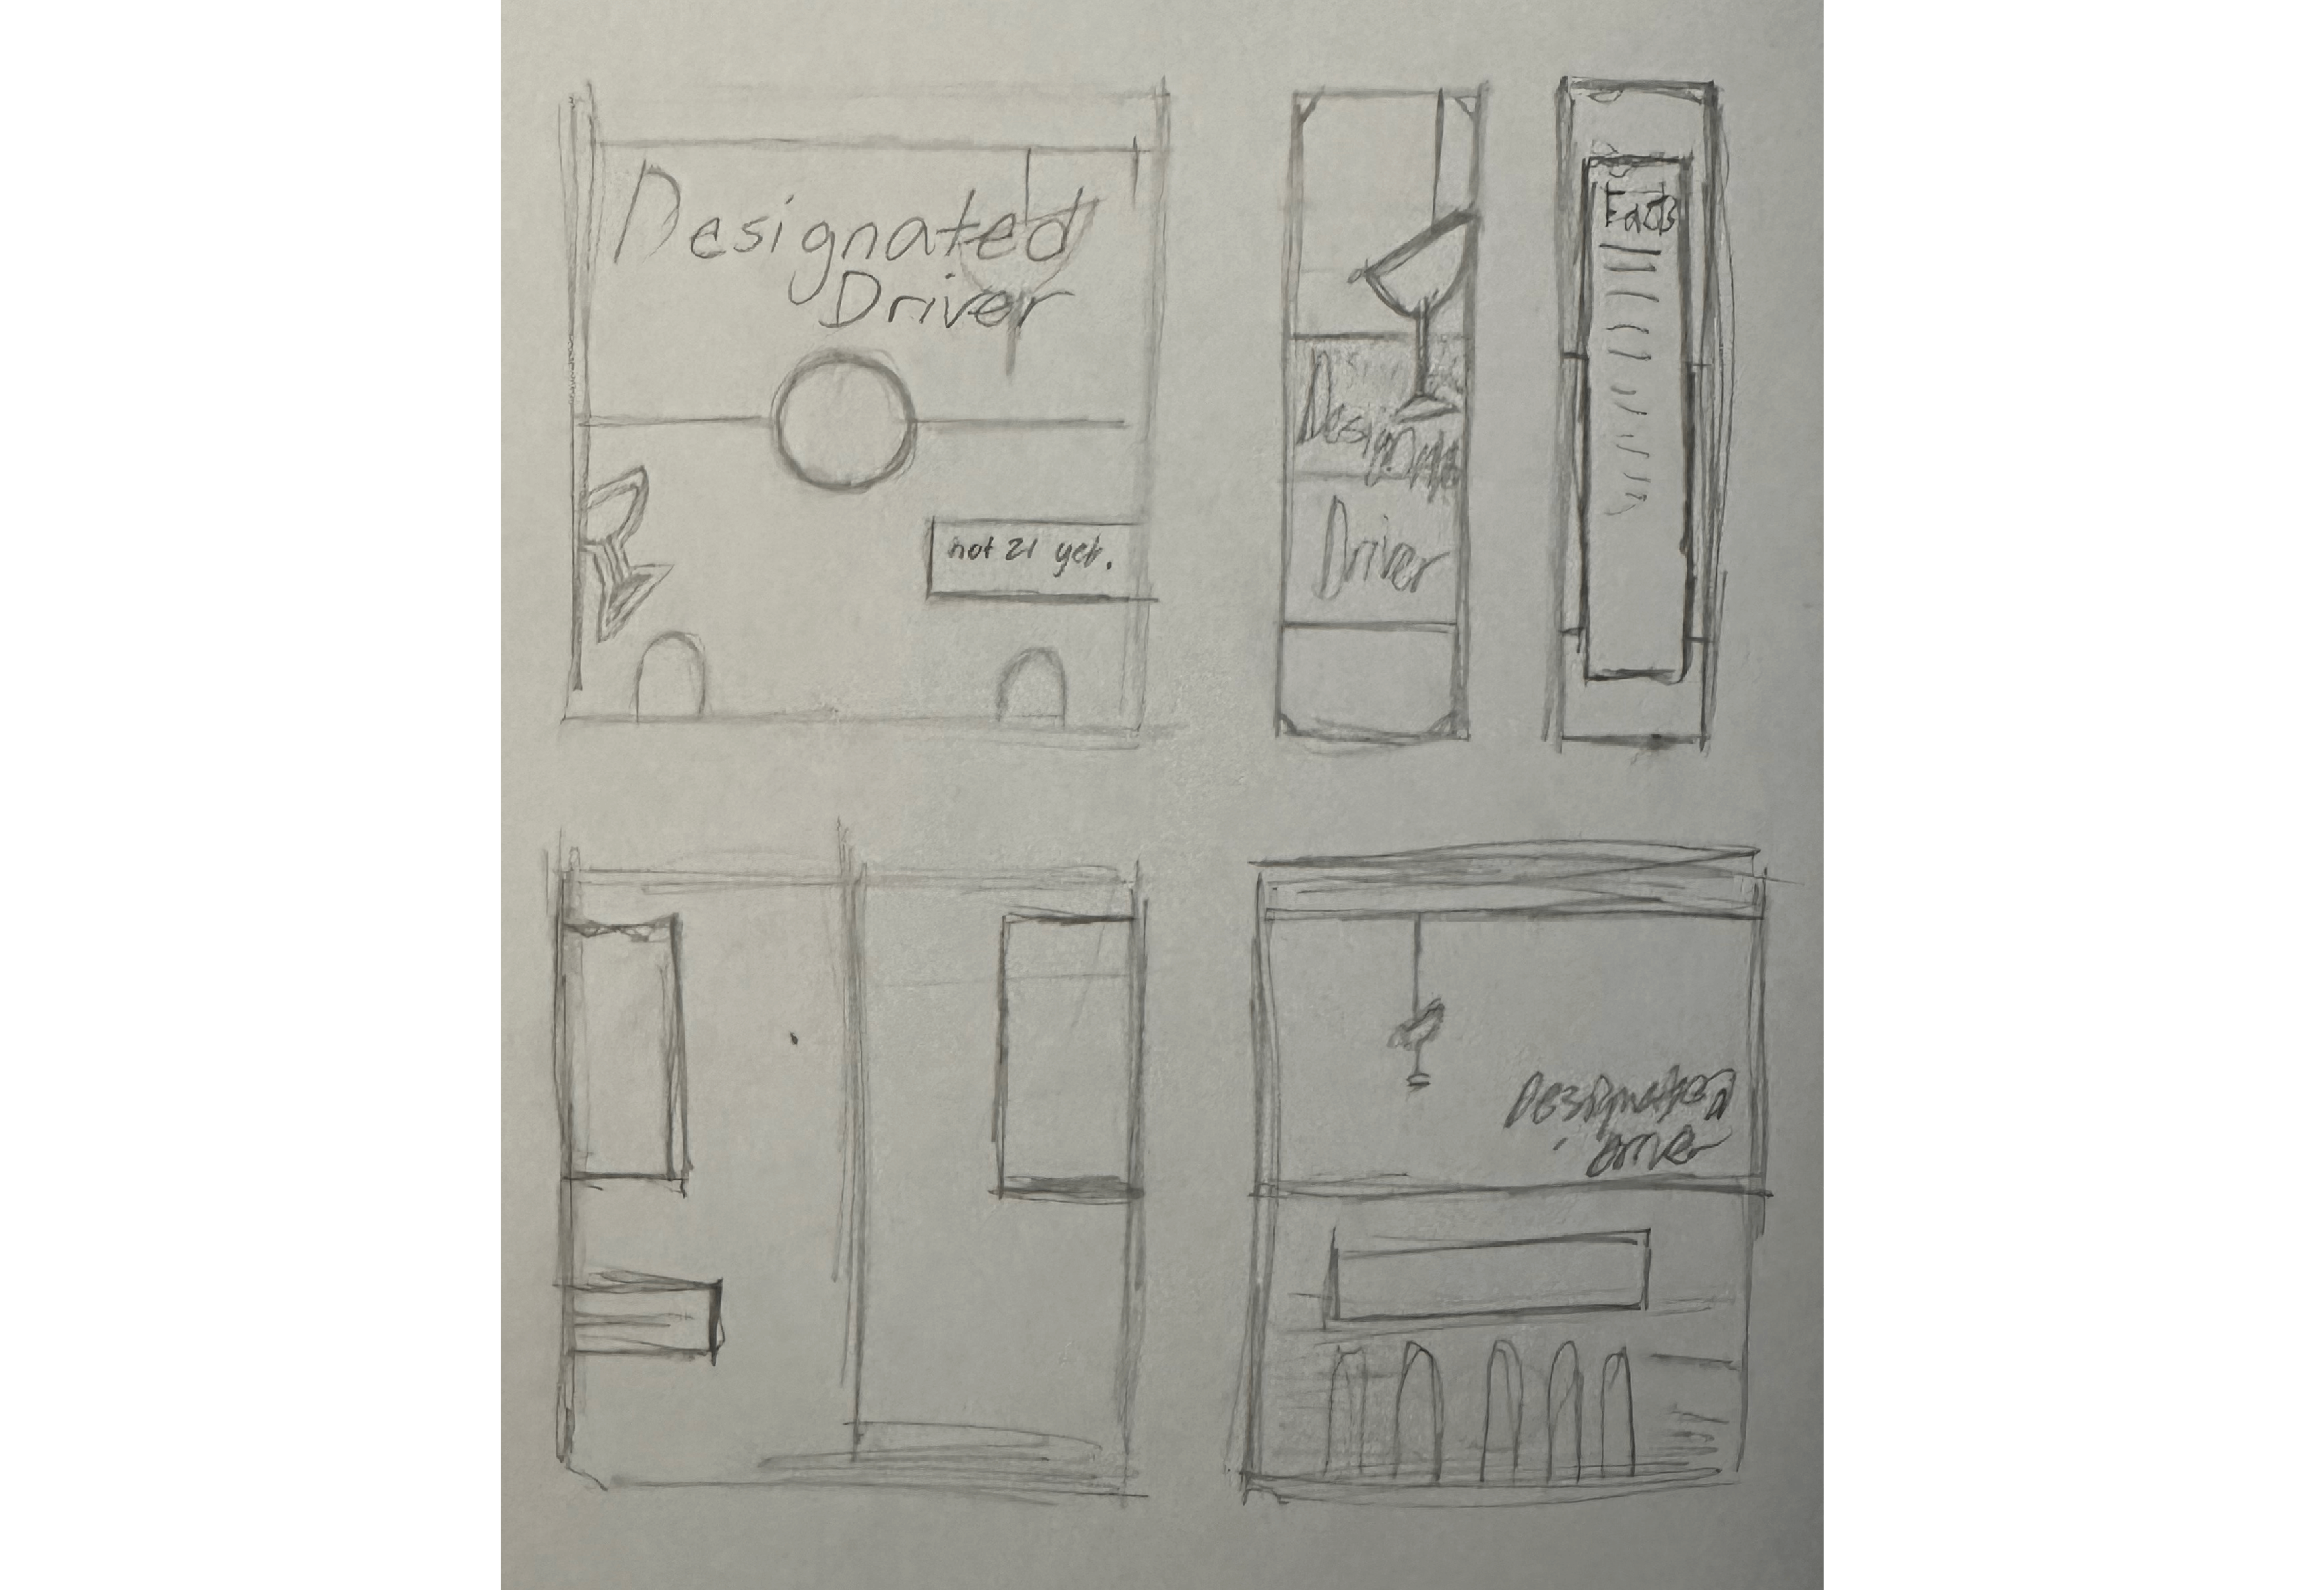 Designated
Driver
not 21 yet.
Designated
Driver
Facts
Designated
Driver